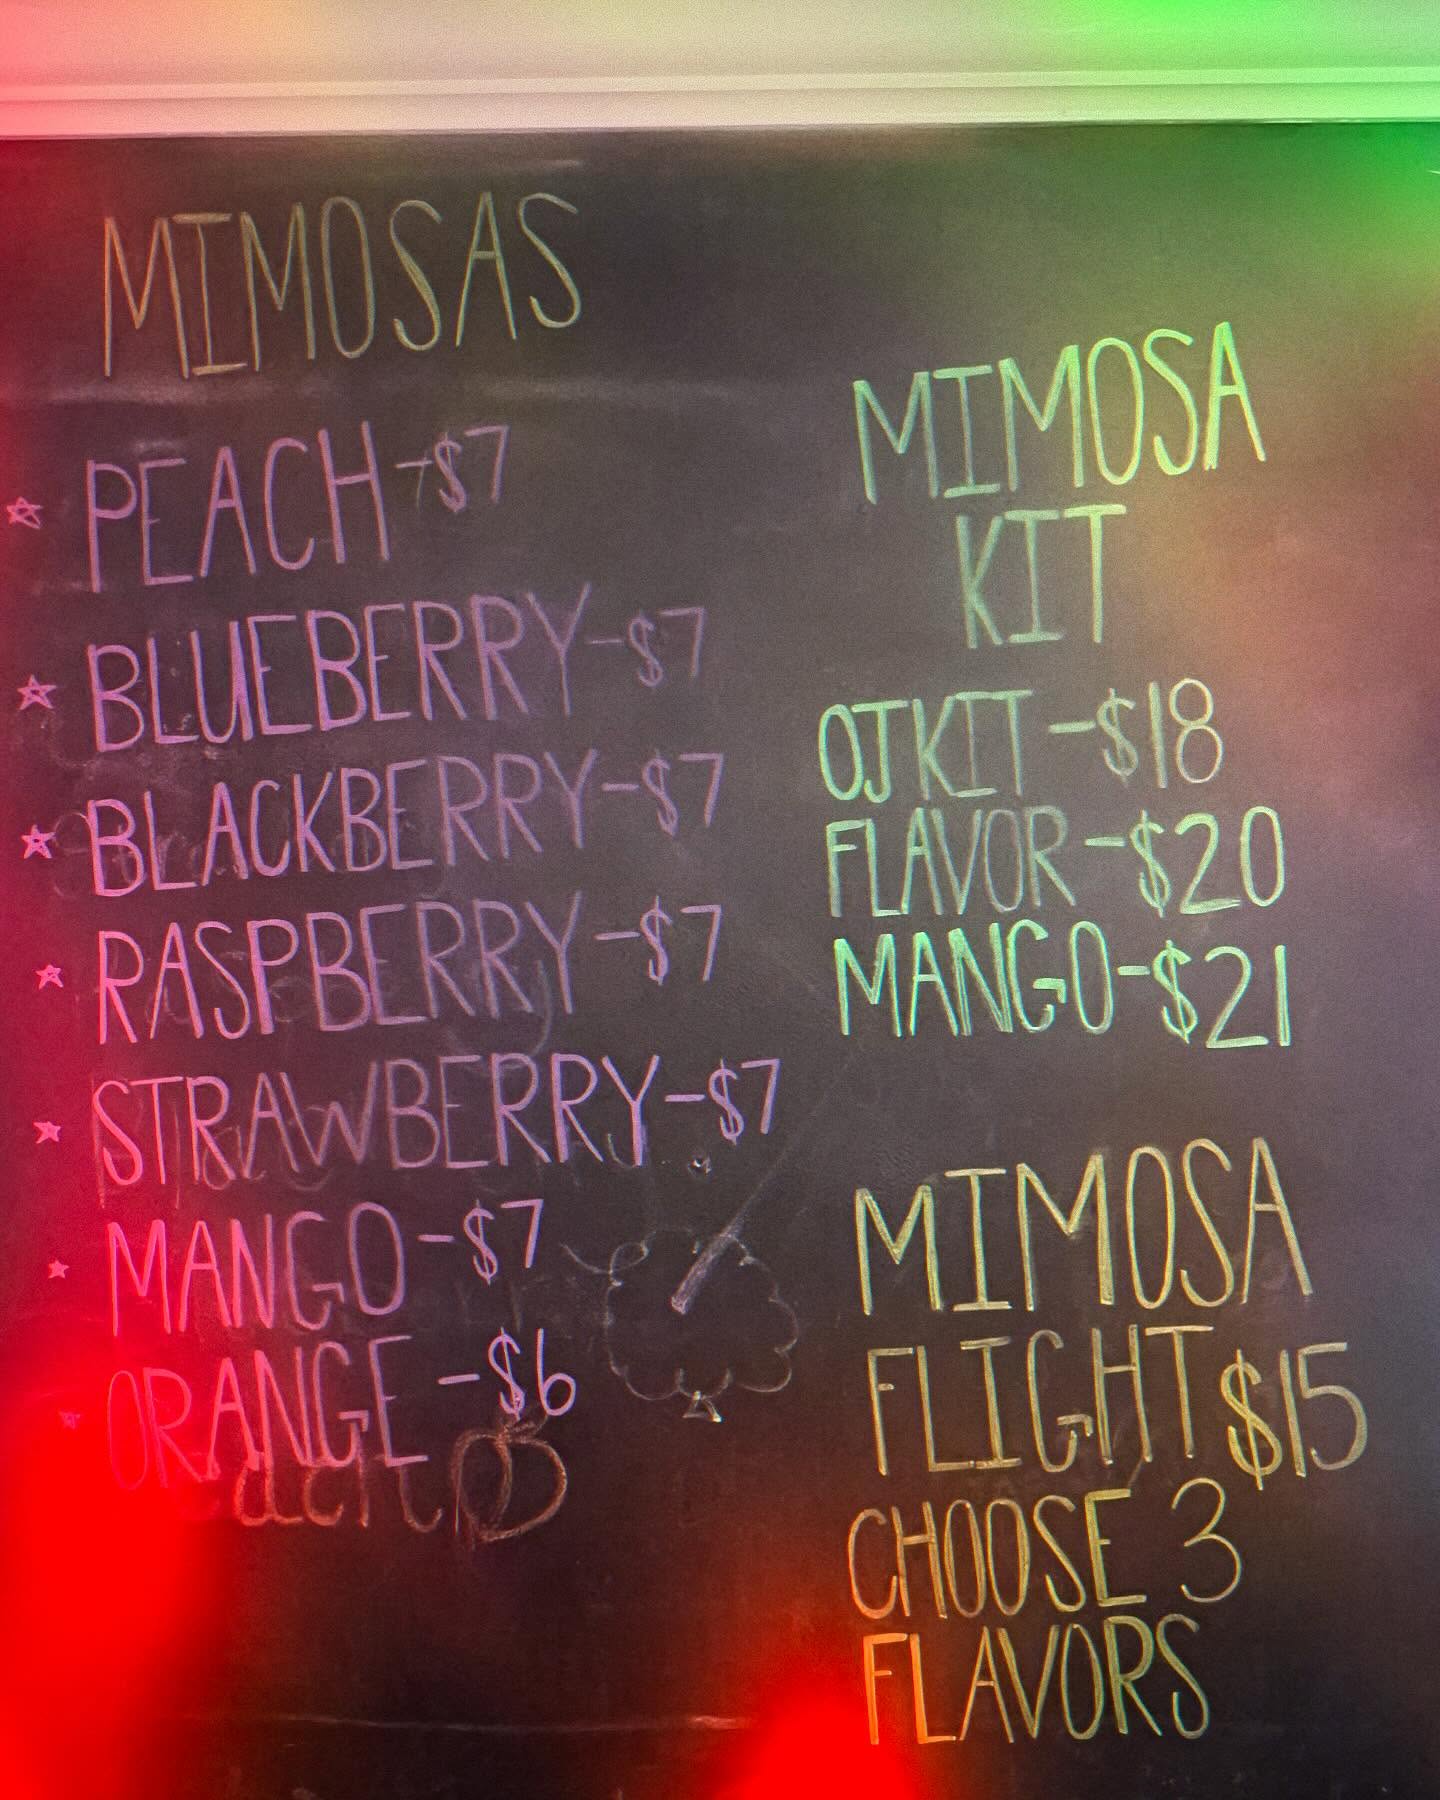 MIMOSAS
PEACH-$7
BLUEBERRY-$7
BLACKBERRY-$7
RASPBERRY-$7
STRAWBERRY-$7
MANGO-$7
ORANGE-$6
MIMOSA
KIT
OJ KIT-$18
FLAVOR-$20
MANGO-$21
MIMOSA
FLIGHT $15
CHOOSE 3
FLAVORS